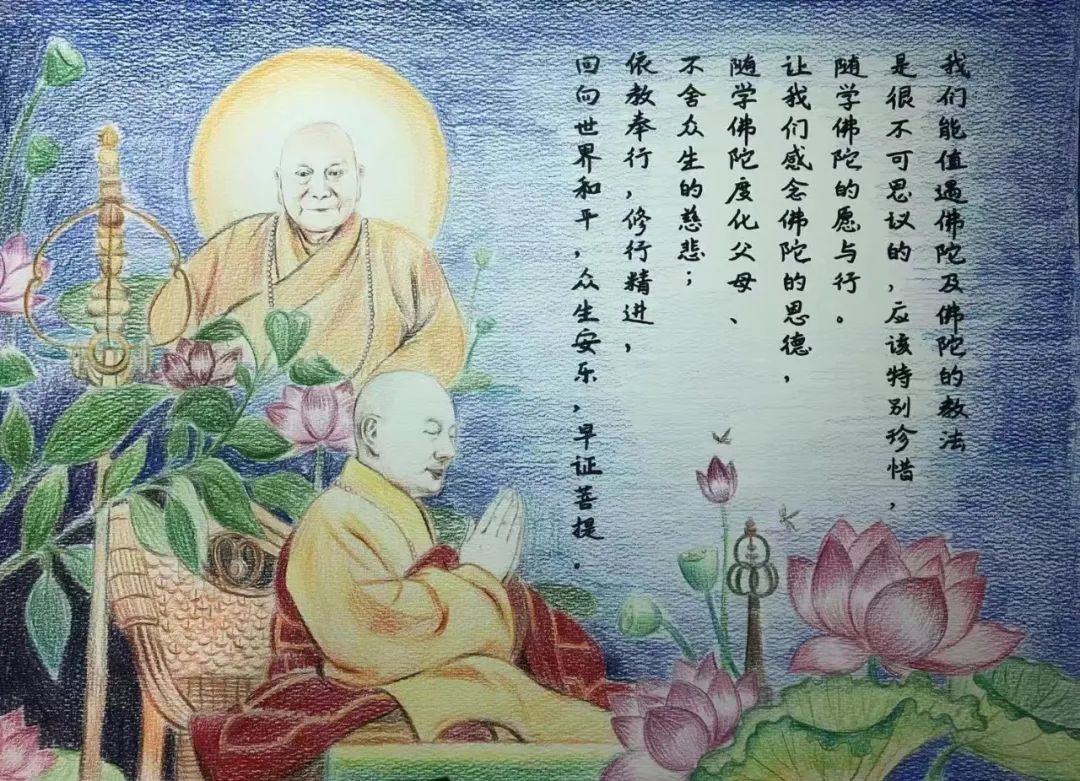 我们能值遇佛陀及佛陀的教法
是很不可思议的,应该特别珍惜,
随学佛陀的愿与行。
让我们感念佛陀的恩德,
随学佛陀度化父母、
不舍众生的慈悲;
依教奉行,修行精进,
回向世界和平,众生安乐,早证菩提.